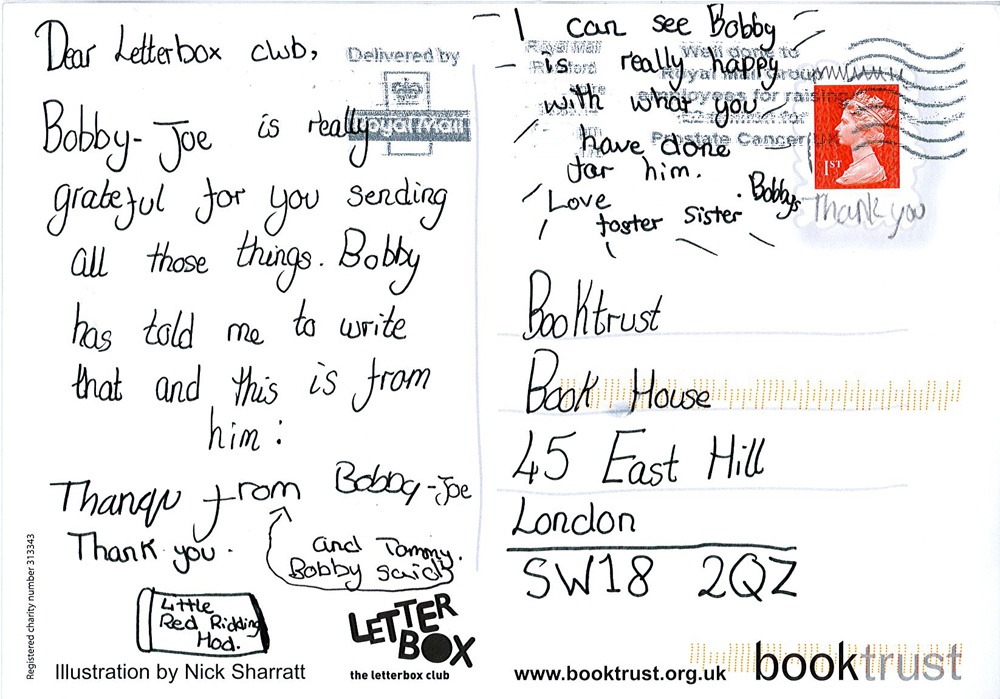 Dear Letterbox club,
Bobby-Joe is really
grateful for you sending
all those things. Bobby
has told me to write
that and this is from
him:
Thanqu from Bobby-Joe
Thank you.
and Tommy.
Bobby said
Little
Red Ridding
Hod.
Illustration by Nick Sharratt
LETTER
BOX
the letterbox club
Registered charity number 313343
Delivered by
Royal Mail
I can see Bobby
is really happy
with what you
have done
for him.
Love
. Bobbys
foster sister
Royal Mail
Well done to
Royal Mail Group
employees for raising
Prostate Cancer UK
1ST
Thank you
Booktrust
Book House
45 East Hill
London
SW18 2QZ
www.booktrust.org.uk
booktrust